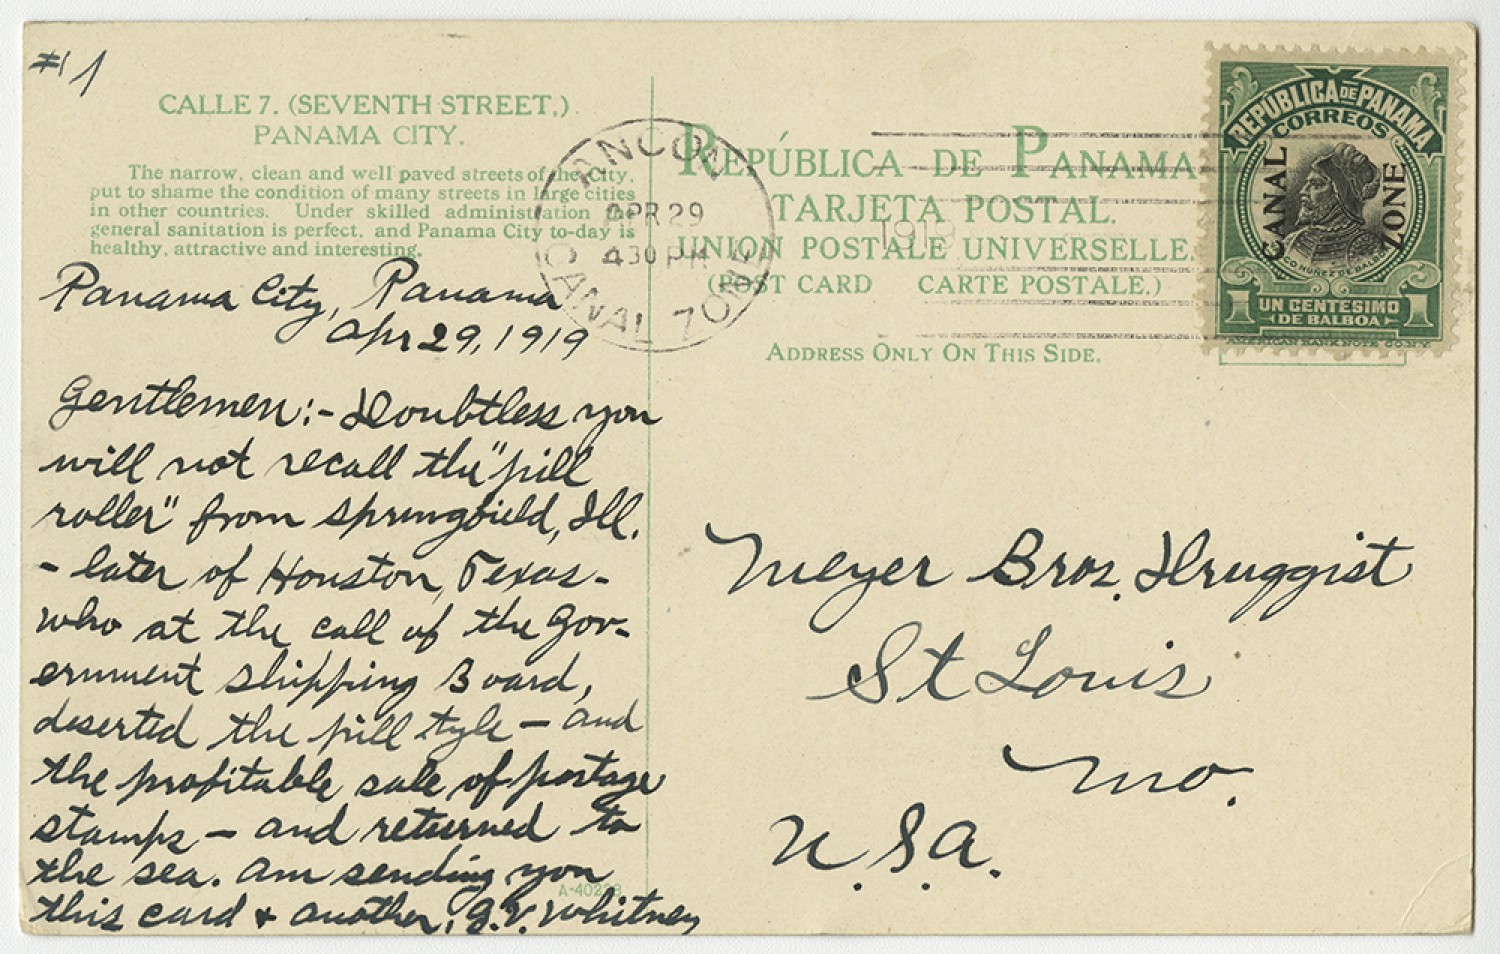 #1
CALLE 7. (SEVENTH STREET,)
PANAMA CITY.
The narrow, clean and well paved streets of the City,
put to shame the condition of many streets in large cities
in other countries. Under skilled administration the
general sanitation is perfect, and Panama City to-day is
healthy, attractive and interesting.
Panama City, Panama
Apr 29, 1919
Gentlemen:- Doubtless you
will not recall the "pill
roller" from Springfield, Ill.
- later of Houston, Texas -
who at the call of the Gov-
ernment Shipping Board,
deserted the pill tyle - and
the profitable sale of postage
stamps - and returned to
the sea. Am sending you
this card & another, G.V. Whitney
A-40298
ANCON
APR 29
430 PM
1919
CANAL ZONE
REPÚBLICA DE PANAMA
TARJETA POSTAL.
UNION POSTALE UNIVERSELLE.
(POST CARD CARTE POSTALE.)
ADDRESS ONLY ON THIS SIDE.
REPUBLICA DE PANAMA
CORREOS
CANAL ZONE
VASCO NUÑEZ DE BALBOA
1 UN CENTESIMO 1
DE BALBOA
AMERICAN BANK NOTE CO. N.Y.
Meyer Bros. Druggist
St Louis
Mo.
U.S.A.